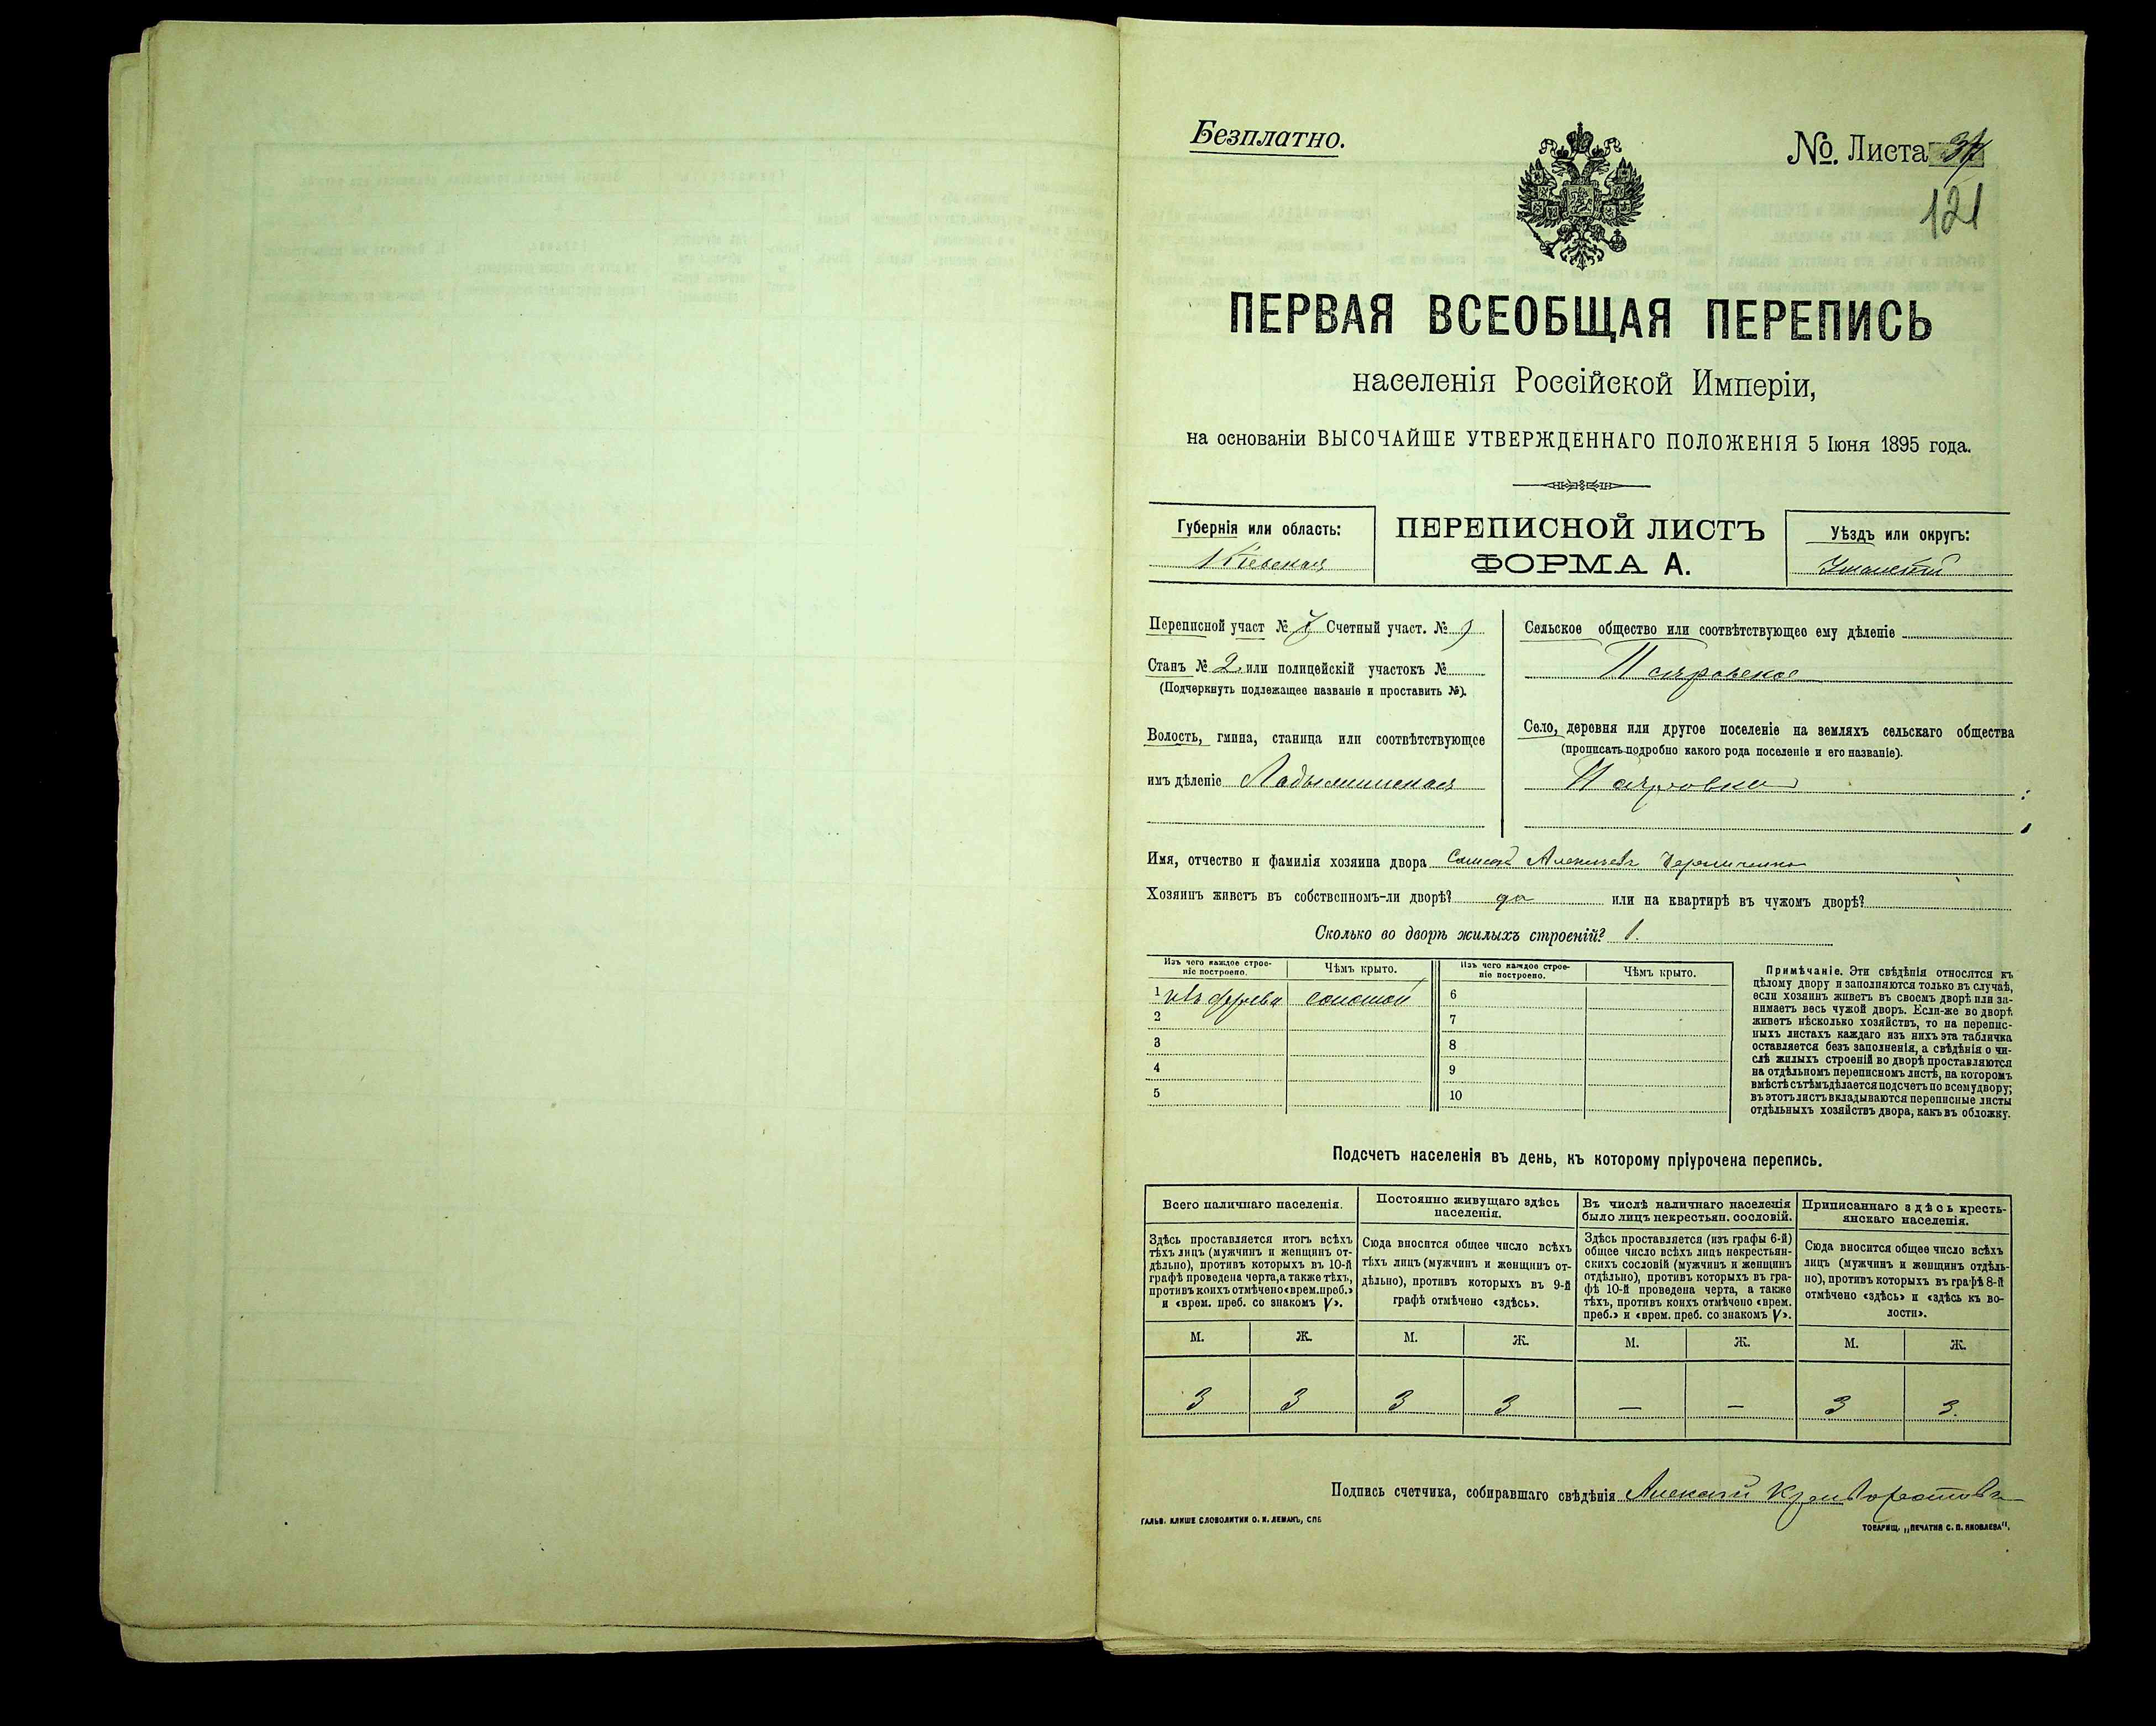 Безплатно.
№. Листа 37
121
ПЕРВАЯ ВСЕОБЩАЯ ПЕРЕПИСЬ
населенія Россійской Имперіи,
на основаніи ВЫСОЧАЙШЕ УТВЕРЖДЕННАГО ПОЛОЖЕНІЯ 5 Іюня 1895 года.
Губернія или область:
Кіевская
ПЕРЕПИСНОЙ ЛИСТЪ
ФОРМА А.
Уѣздъ или округъ:
Уманскій
Переписной участ № 7 Счетный участ. №
Станъ № 2 или полицейскій участокъ №
(Подчеркнуть подлежащее названіе и проставить №).
Волость, гмина, станица или соотвѣтствующее
имъ дѣленіе Ладыжинская
Сельское общество или соотвѣтствующее ему дѣленіе
Село, деревня или другое поселеніе на земляхъ сельскаго общества
(прописать подробно какого рода поселеніе и его названіе).
Имя, отчество и фамилія хозяина двора
Хозяинъ живетъ въ собственномъ-ли дворѣ? да или на квартирѣ въ чужомъ дворѣ?
Сколько во дворѣ жилыхъ строеній? 1.
Изъ чего каждое строе-
ніе построено.
Чѣмъ крыто.
Изъ чего каждое строе-
ніе построено.
Чѣмъ крыто.
1 изъ дерева соломой
2
3
4
5
6
7
8
9
10
Примѣчаніе. Эти свѣдѣнія относятся къ
цѣлому двору и заполняются только въ случаѣ,
если хозяинъ живетъ въ своемъ дворѣ или за-
нимаетъ весь чужой дворъ. Если-же во дворѣ
живетъ нѣсколько хозяйствъ, то на перепис-
ныхъ листахъ каждаго изъ нихъ эта табличка
оставляется безъ заполненія, а свѣдѣнія о чи-
слѣ жилыхъ строеній во дворѣ проставляются
на отдѣльномъ переписномъ листѣ, на которомъ
вмѣстѣ съ тѣмъ дѣлается подсчетъ по всему двору;
въ этотъ листъ вкладываются переписные листы
отдѣльныхъ хозяйствъ двора, какъ въ обложку.
Подсчетъ населенія въ день, къ которому пріурочена перепись.
Всего наличнаго населенія.
Здѣсь проставляется итогъ всѣхъ
тѣхъ лицъ (мужчинъ и женщинъ от-
дѣльно), противъ которыхъ въ 10-й
графѣ проведена черта, а также тѣхъ,
противъ коихъ отмѣчено «врем. преб.»
и «врем. преб. со знакомъ V».
Постоянно живущаго здѣсь
населенія.
Сюда вносится общее число всѣхъ
тѣхъ лицъ (мужчинъ и женщинъ от-
дѣльно), противъ которыхъ въ 9-й
графѣ отмѣчено «здѣсь».
Въ числѣ наличнаго населенія
было лицъ некрестьян. сословій.
Здѣсь проставляется (изъ графы 6-й)
общее число всѣхъ лицъ некрестьян-
скихъ сословій (мужчинъ и женщинъ
отдѣльно), противъ которыхъ въ гра-
фѣ 10-й проведена черта, а также
тѣхъ, противъ коихъ отмѣчено «врем.
преб.» и «врем. преб. со знакомъ V».
Приписаннаго здѣсь кресть-
янскаго населенія.
Сюда вносится общее число всѣхъ
лицъ (мужчинъ и женщинъ отдѣль-
но), противъ которыхъ въ графѣ 8-й
отмѣчено «здѣсь» и «здѣсь къ во-
лости».
М. Ж. М. Ж. М. Ж. М. Ж.
3 3 3 3 — — 3 3.
Подпись счетчика, собиравшаго свѣдѣнія Алексѣй
ГАЛЬВ. КЛИШЕ СЛОВОЛИТНИ О. И. ЛЕМАНЪ, СПБ
ТОВАРИЩ. „ПЕЧАТНЯ С. П. ЯКОВЛЕВА“.